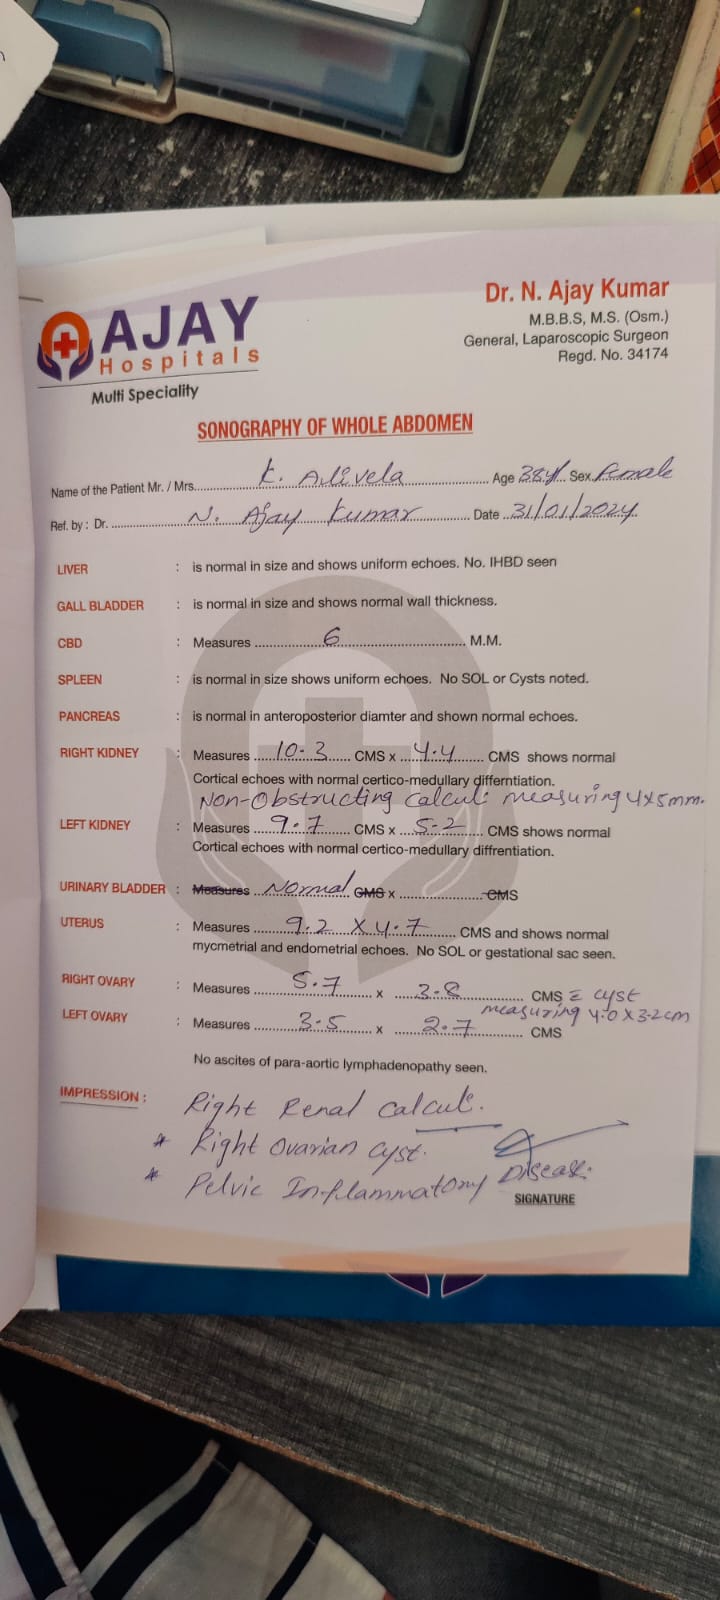 AJAY
Hospitals
Multi Speciality
Dr. N. Ajay Kumar
M.B.B.S, M.S. (Osm.)
General, Laparoscopic Surgeon
Regd. No. 34174
SONOGRAPHY OF WHOLE ABDOMEN
Name of the Patient Mr. / Mrs. K. Alivela Age 38y Sex Female
Ref. by : Dr. N. Ajay Kumar Date 31/01/2024
LIVER : is normal in size and shows uniform echoes. No. IHBD seen
GALL BLADDER : is normal in size and shows normal wall thickness.
CBD : Measures 6 M.M.
SPLEEN : is normal in size shows uniform echoes. No SOL or Cysts noted.
PANCREAS : is normal in anteroposterior diamter and shown normal echoes.
RIGHT KIDNEY : Measures 10.3 CMS x 4.4 CMS shows normal
Cortical echoes with normal certico-medullary differntiation.
Non-Obstructing calculi measuring 4x5mm.
LEFT KIDNEY : Measures 9.7 CMS x 5.2 CMS shows normal
Cortical echoes with normal certico-medullary diffrentiation.
URINARY BLADDER : Measures Normal CMS x CMS
UTERUS : Measures 9.2 x 4.7 CMS and shows normal
mycmetrial and endometrial echoes. No SOL or gestational sac seen.
RIGHT OVARY : Measures 5.7 x 3.8 CMS cyst
measuring 4.0 x 3.2cm
LEFT OVARY : Measures 3.5 x 2.7 CMS
No ascites of para-aortic lymphadenopathy seen.
IMPRESSION : Right Renal calculi.
* Right Ovarian cyst.
* Pelvic Inflammatory Disease.
SIGNATURE